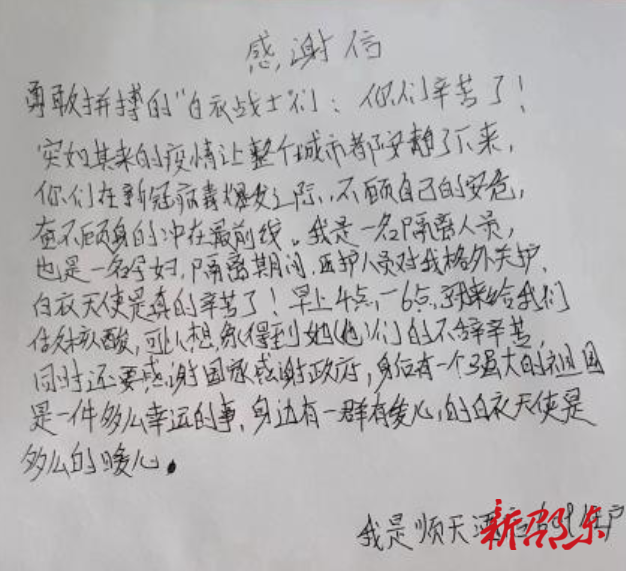 感谢信
勇敢拼搏的“白衣战士”们：你们辛苦了！
突如其来的疫情让整个城市都安静了下来，
你们在新冠病毒爆发之际，不顾自己的安危，
奋不顾身的冲在最前线。我是一名隔离人员，
也是一名孕妇，隔离期间，医护人员对我格外关护，
白衣天使是真的辛苦了！早上4点，—6点，到来给我们
做核酸，可以想象得到她(他)们的不辞辛苦，
同时还要感谢国家感谢政府，身后有一个强大的祖国
是一件多么幸运的事，身边有一群有爱心，的白衣天使是
多么的暖心。
我是顺天酒店
新邵东